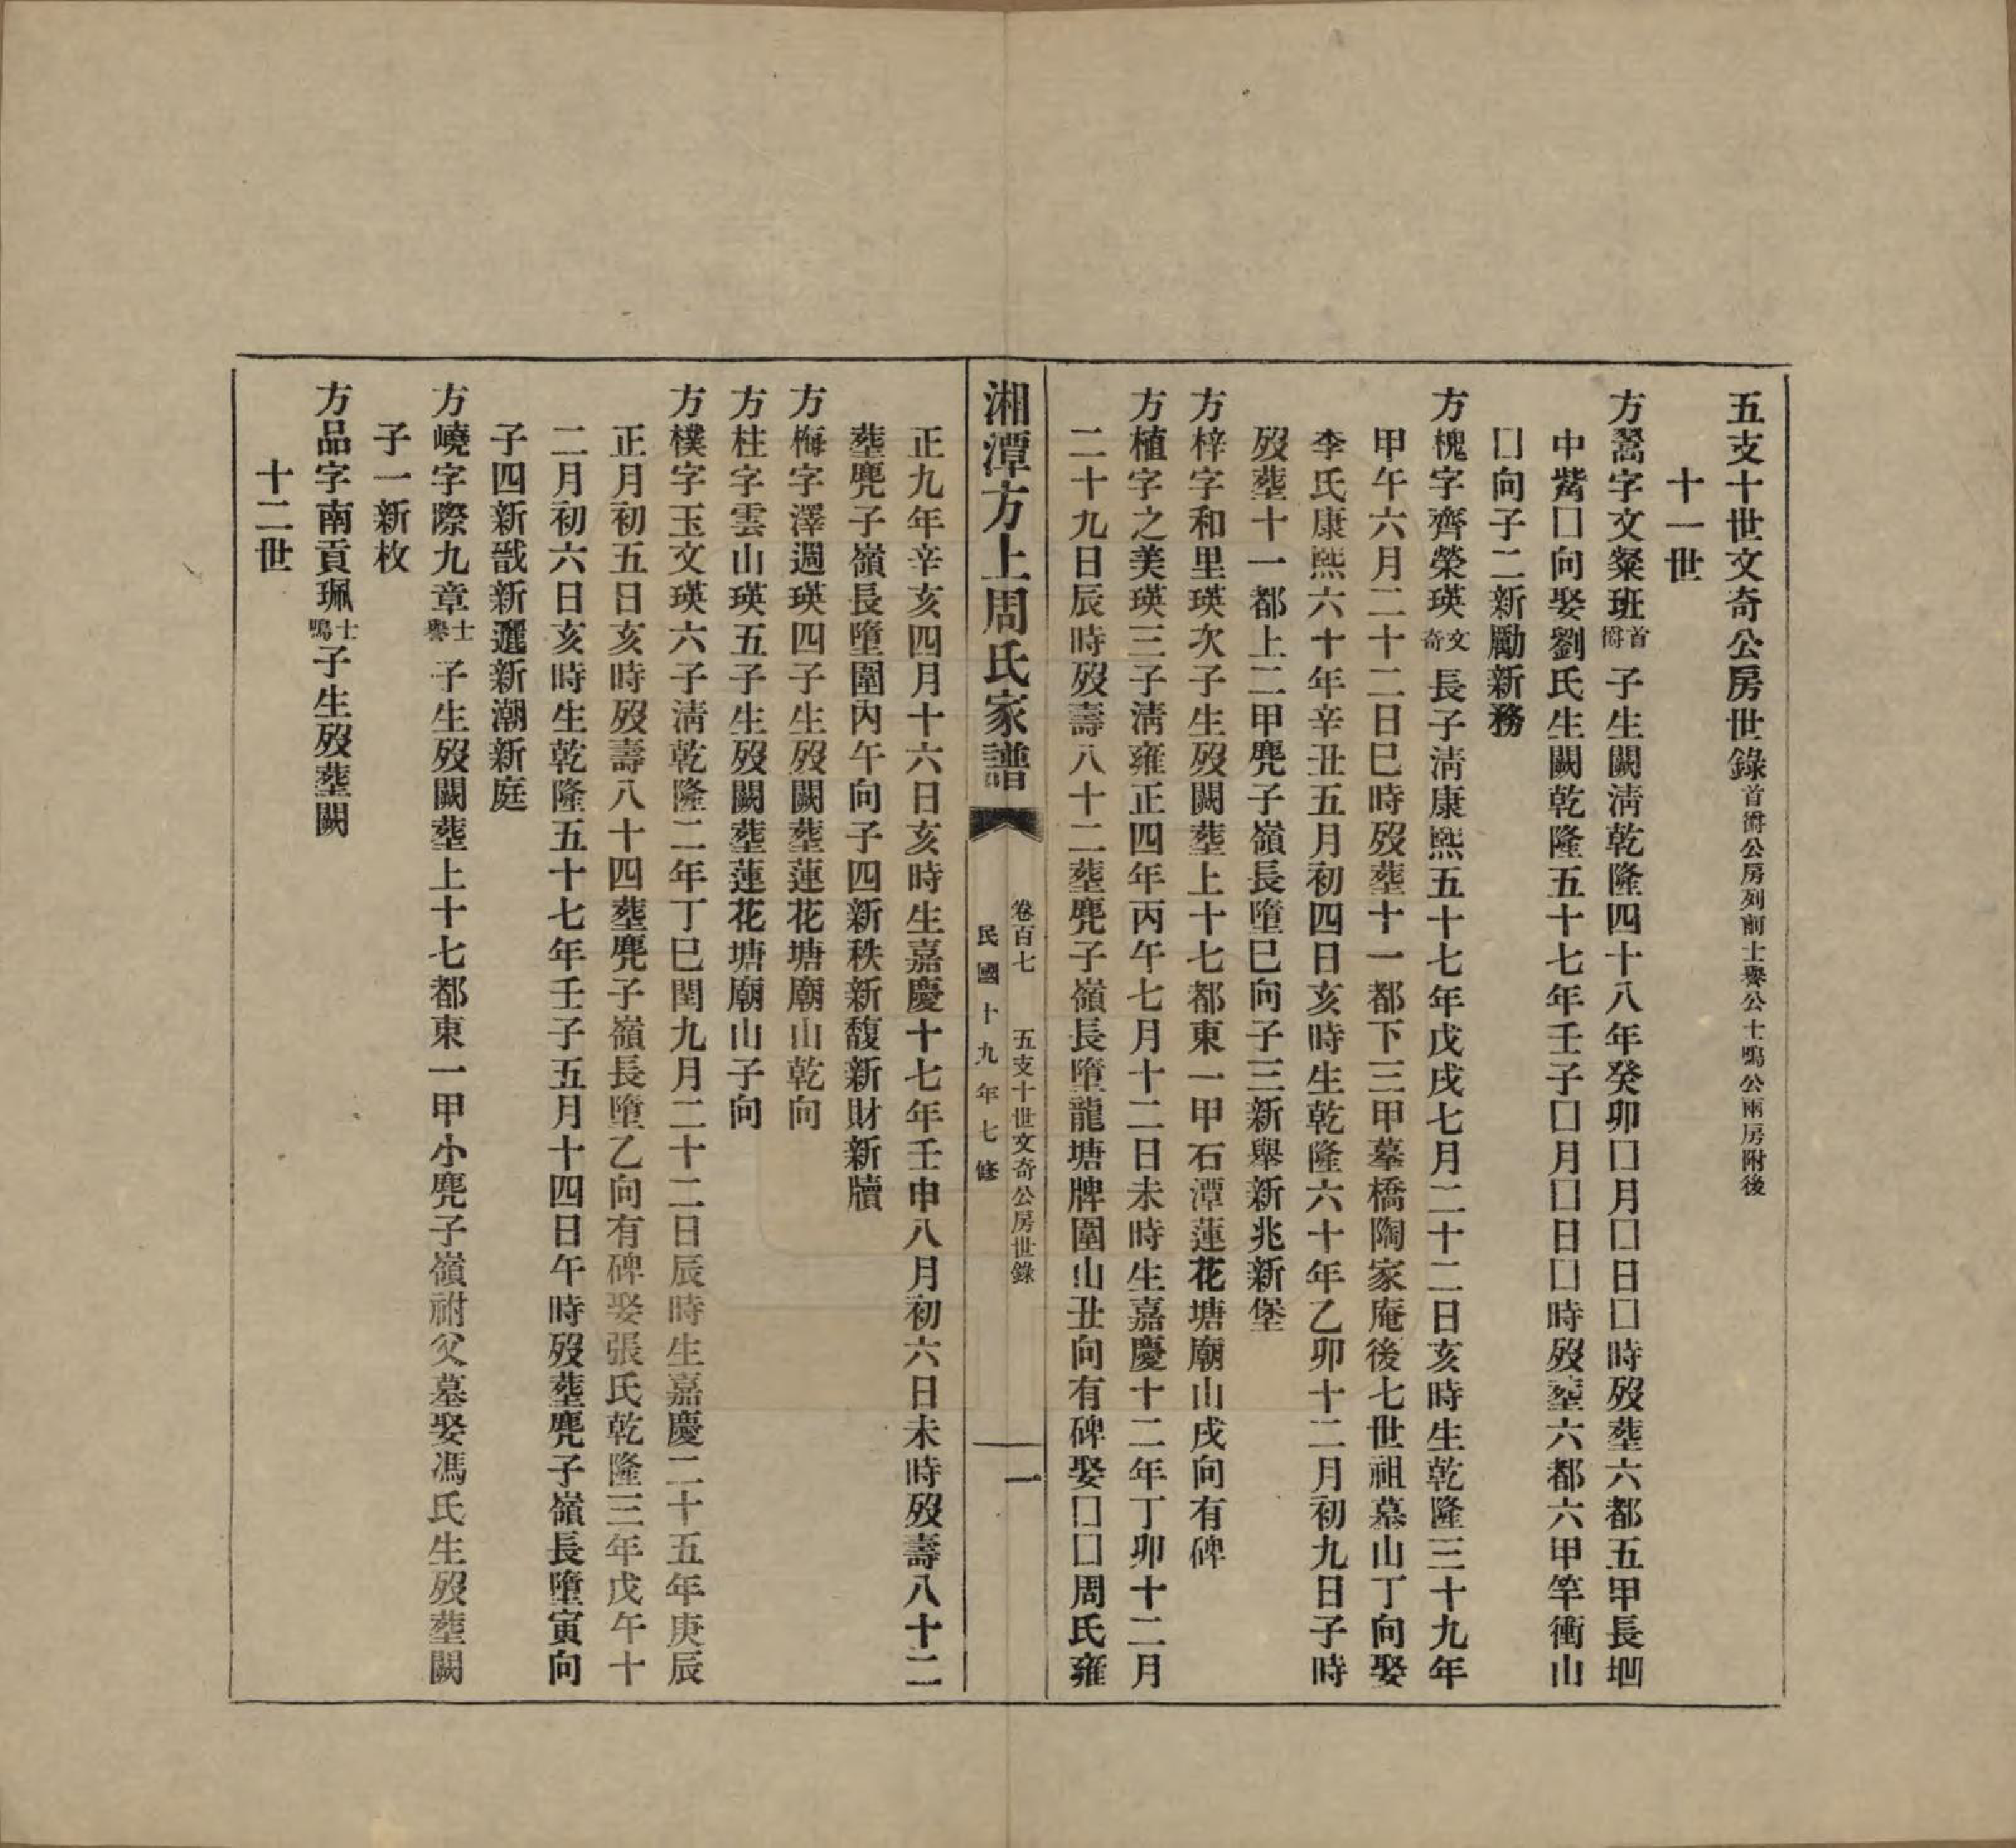 五支十世文奇公房世錄首爵公房列前士譽公士鳴公兩房附後
十一世
方翯字文粲班首爵子生闕淸乾隆四十八年癸卯囗月囗日囗時歿葬六都五甲長堋
中觜囗向娶劉氏生闕乾隆五十七年壬子囗月囗日囗時歿葬六都六甲竿衝山
囗向子二新勵新務
方槐字齊榮瑛文奇長子淸康熙五十七年戊戌七月二十二日亥時生乾隆三十九年
甲午六月二十二日巳時歿葬十一都下三甲墓橋陶家庵後七世祖墓山丁向娶
李氏康熙六十年辛丑五月初四日亥時生乾隆六十年乙卯十二月初九日子時
歿葬十一都上二甲麂子嶺長墮巳向子三新舉新兆新堡
方梓字和里瑛次子生歿闕葬上十七都東一甲石潭蓮花塘廟山戌向有碑
方植字之美瑛三子淸雍正四年丙午七月十二日未時生嘉慶十二年丁卯十二月
二十九日辰時歿壽八十二葬麂子嶺長墮龍塘牌圍山丑向有碑娶囗囗周氏雍
湘潭方上周氏家譜
卷百七 五支十世文奇公房世錄
民國十九年七修
一
正九年辛亥四月十六日亥時生嘉慶十七年壬申八月初六日未時歿壽八十二
葬麂子嶺長墮圍內午向子四新秩新馥新財新牘
方梅字澤週瑛四子生歿闕葬蓮花塘廟山乾向
方柱字雲山瑛五子生歿闕葬蓮花塘廟山子向
方樸字玉文瑛六子淸乾隆二年丁巳閏九月二十二日辰時生嘉慶二十五年庚辰
正月初五日亥時歿壽八十四葬麂子嶺長墮乙向有碑娶張氏乾隆三年戊午十
二月初六日亥時生乾隆五十七年壬子五月十四日午時歿葬麂子嶺長墮寅向
子四新戩新邐新潮新庭
方嶢字際九章士譽子生歿闕葬上十七都東一甲小麂子嶺祔父墓娶馮氏生歿葬闕
子一新枚
方品字南貢珮士鳴子生歿葬闕
十二世